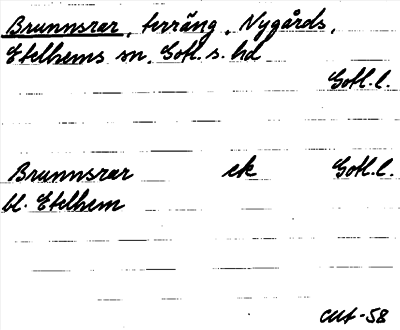 Brunnsrar, terräng, Nygårds,
Etelhems sn, Gotl. s. hd
Gotl. l.
Brunnsrar ek Gotl. l.
bl. Etelhem
-58